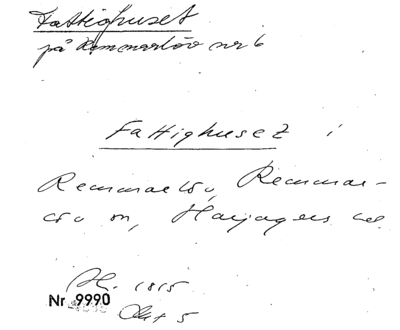 Fattighuset
på Remmarlöv nr 6
Fattighuset i
Remmarlöv, Remmar-
löv sn, Harjagers hd
Nr 9990
1815
Okt 5